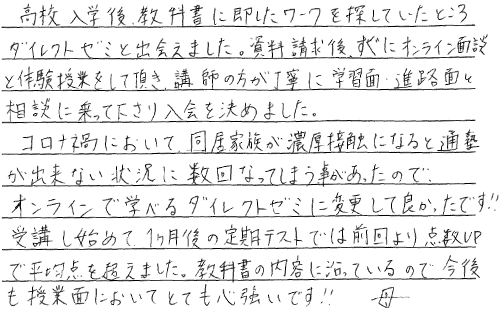 高校入学後、教科書に即したワークを探していたところ
ダイレクトゼミと出会えました。資料請求後、すぐにオンライン面談
と体験授業をして頂き、講師の方が丁寧に学習面・進路面と
相談に乗って下さり入会を決めました。
コロナ禍において、同居家族が濃厚接触になると通塾
が出来ない状況に数回なってしまう事があったので、
オンラインで学べるダイレクトゼミに変更して良かったです!!
受講し始めて、1ヶ月後の定期テストでは前回より点数UP
で平均点を超えました。教科書の内容に沿っているので今後
も授業面においてとても心強いです!! 母